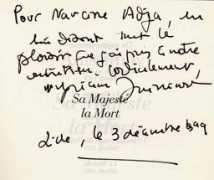 Pour Narcine Adja, en
lui disant tout le
plaisir que j'ai pris à notre
entretien. Cordialement,
Myriam
Sa Majesté
la Mort
Lille, le 3 décembre 1999